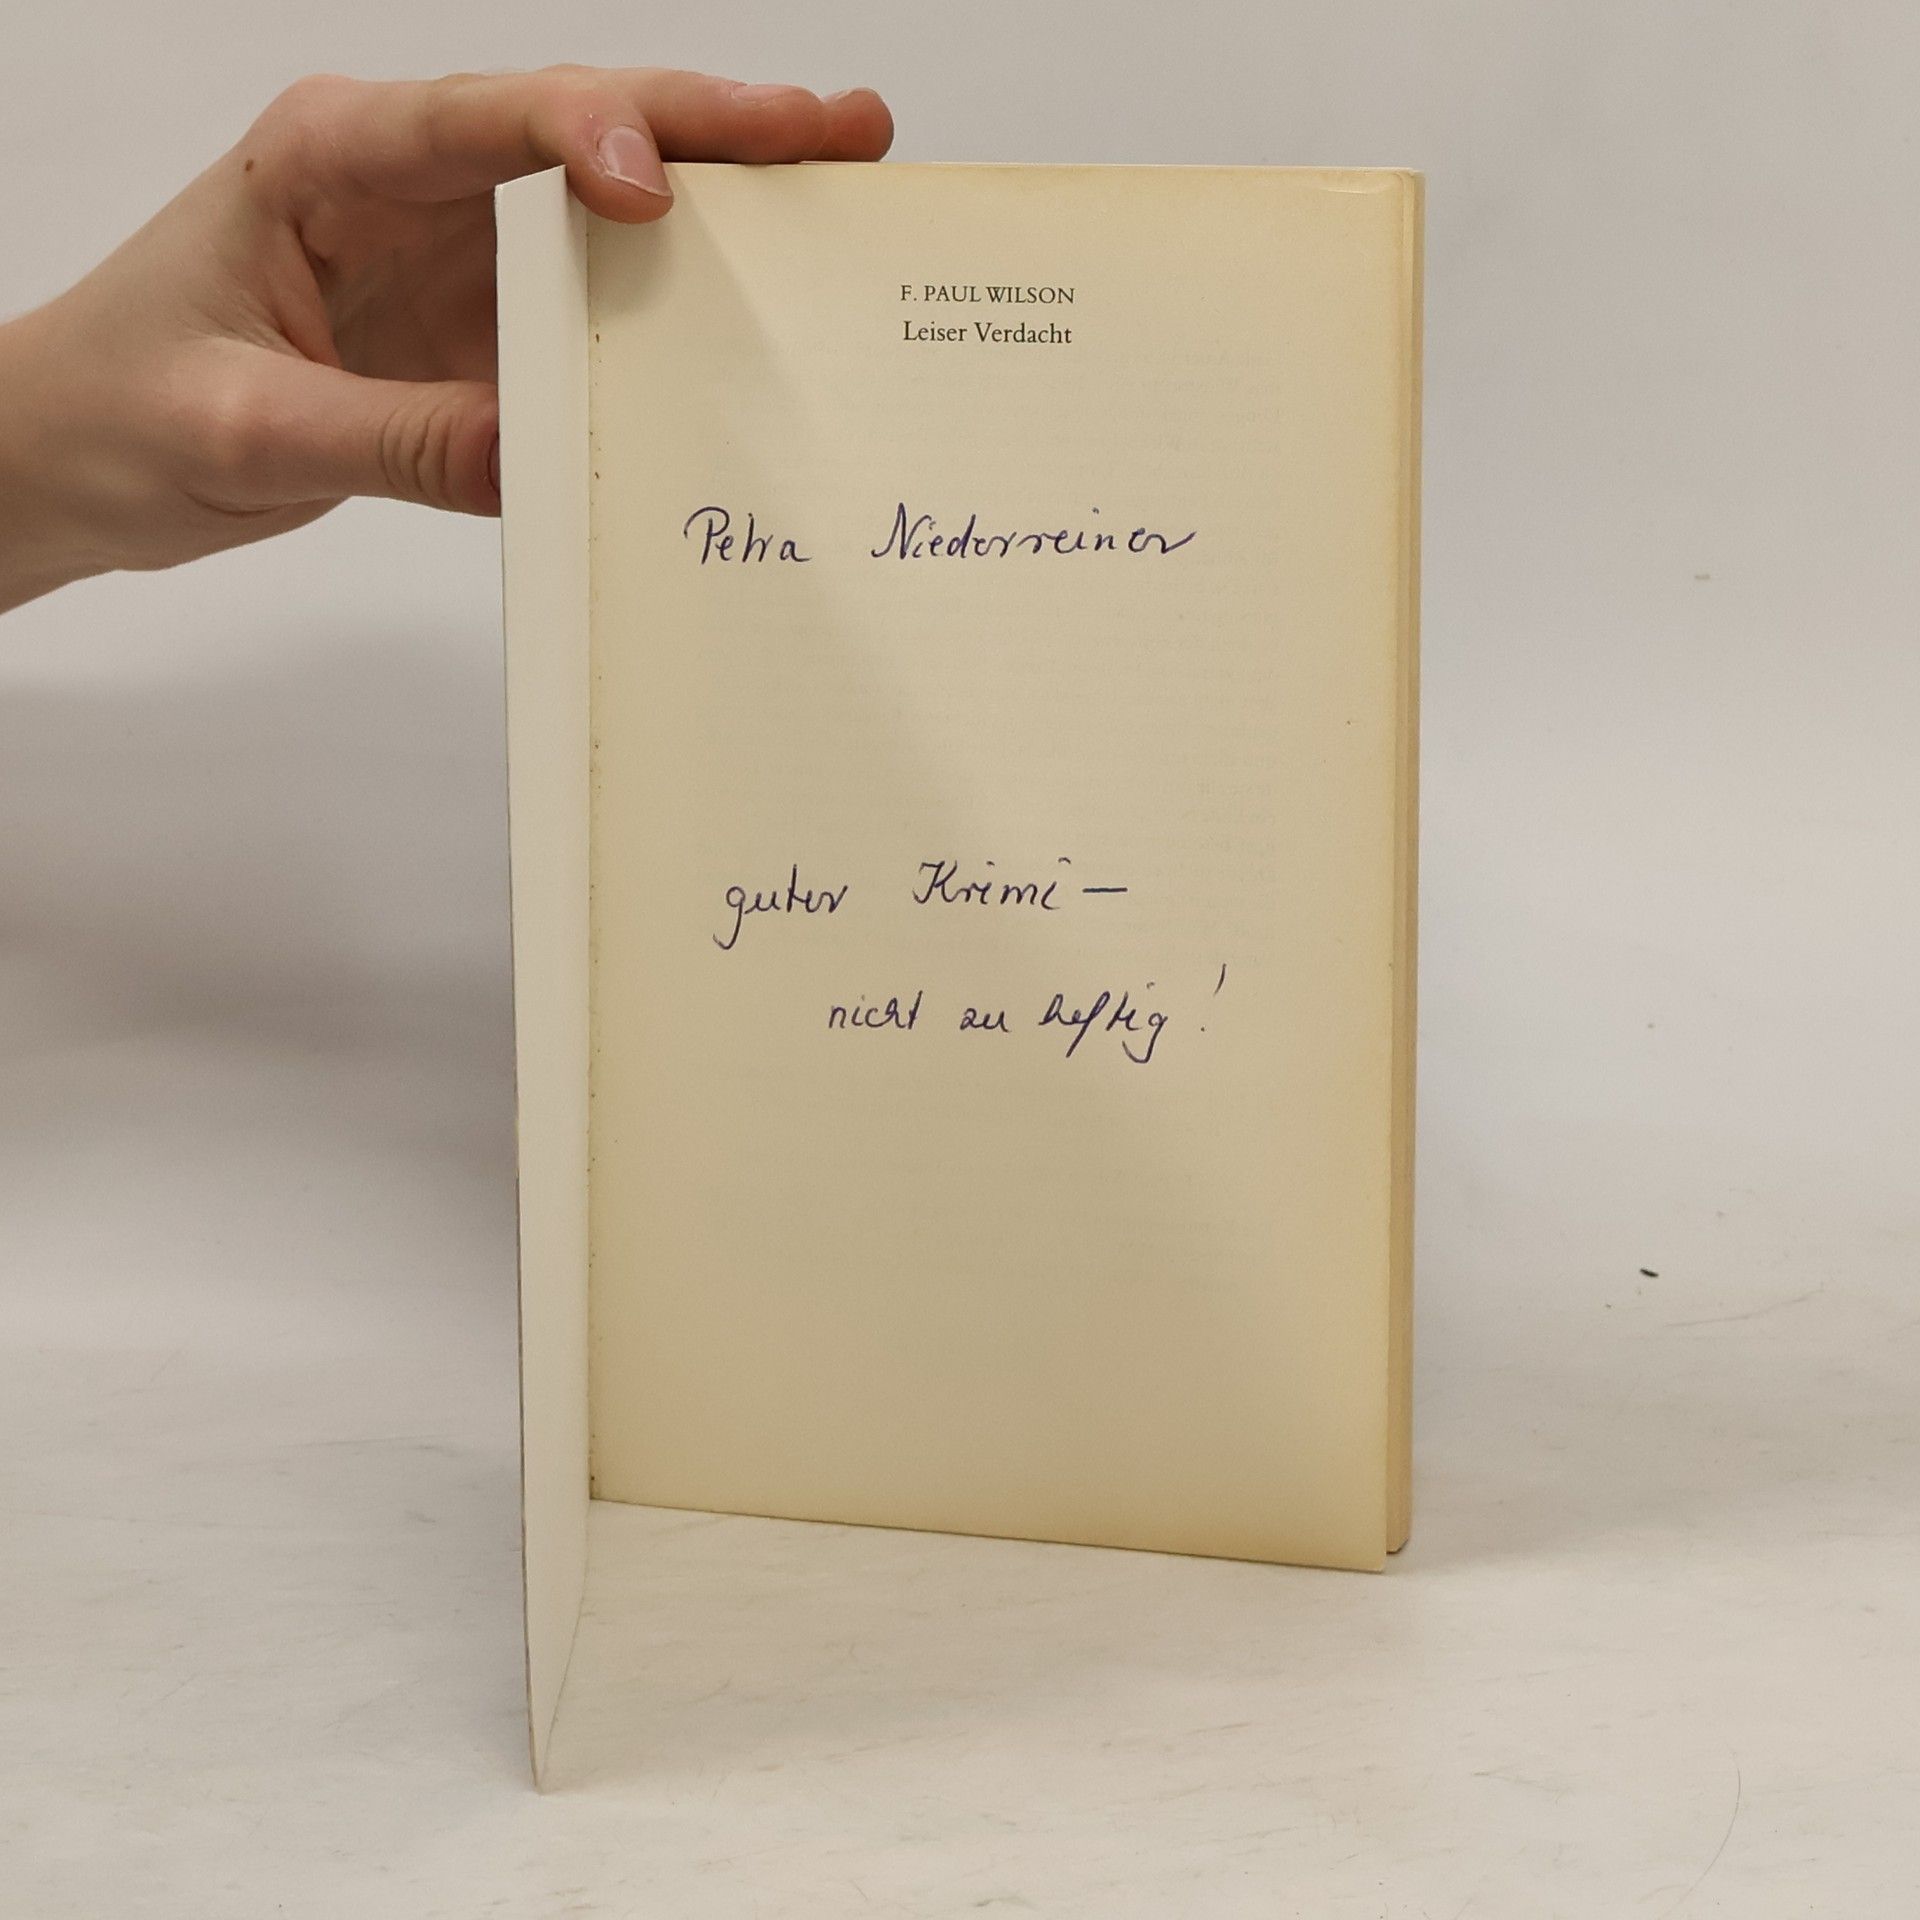 F. PAUL WILSON
Leiser Verdacht
Petra Niederreiner
guter Krimi –
nicht zu heftig!